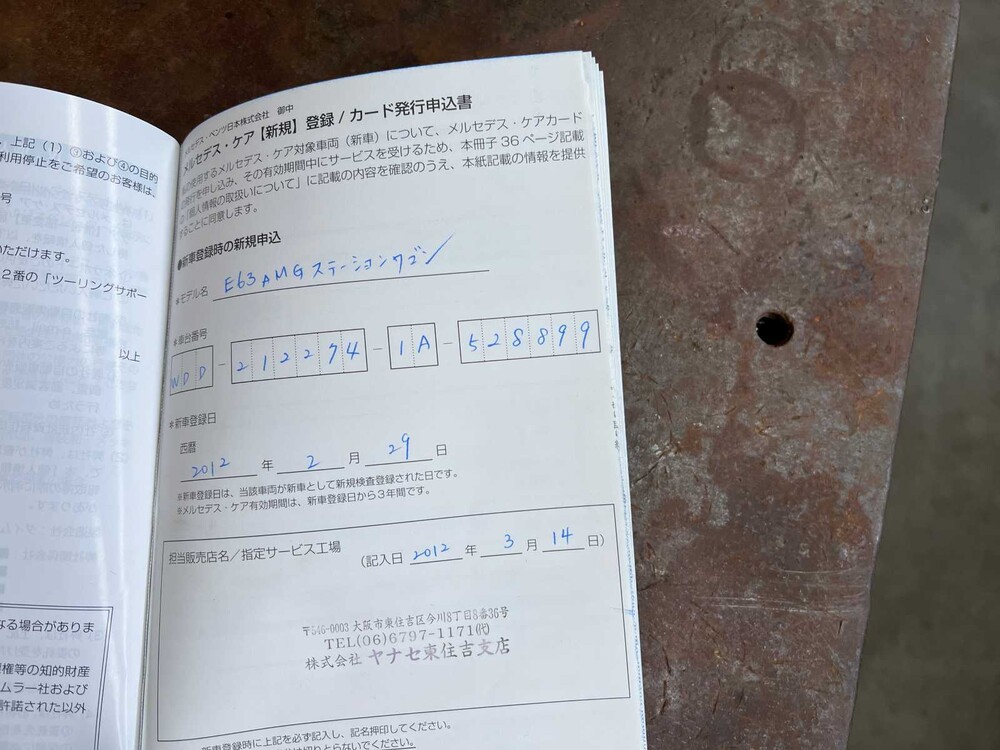 、上記(1)③および④の目的
利用停止をご希望のお客様は、
号
いただけます。
2番の「ツーリングサポー
以上
なる場合がありま
権等の知的財産
ムラー社および
許諾された以外
メルセデス・ベンツ日本株式会社 御中
メルセデス・ケア【新規】登録 / カード発行申込書
使用するメルセデス・ケア対象車両(新車)について、メルセデス・ケアカード
発行を申し込み、その有効期間中にサービスを受けるため、本冊子36ページ記載
「個人情報の取扱いについて」に記載の内容を確認のうえ、本紙記載の情報を提供
することに同意します。
●新車登録時の新規申込
*モデル名 E63 AMG ステーションワゴン
*車台番号
WDD - 212274 - 1A - 528899
*新車登録日
西暦
2012 年 2 月 29 日
※新車登録日は、当該車両が新車として新規検査登録された日です。
※メルセデス・ケア有効期間は、新車登録日から3年間です。
担当販売店名/指定サービス工場 (記入日 2012 年 3 月 14 日)
〒546-0003 大阪市東住吉区今川8丁目8番36号
TEL(06)6797-1171(代)
株式会社 ヤナセ東住吉支店
新車登録時に上記を必ず記入し、記名押印してください。
切りとらないでください。